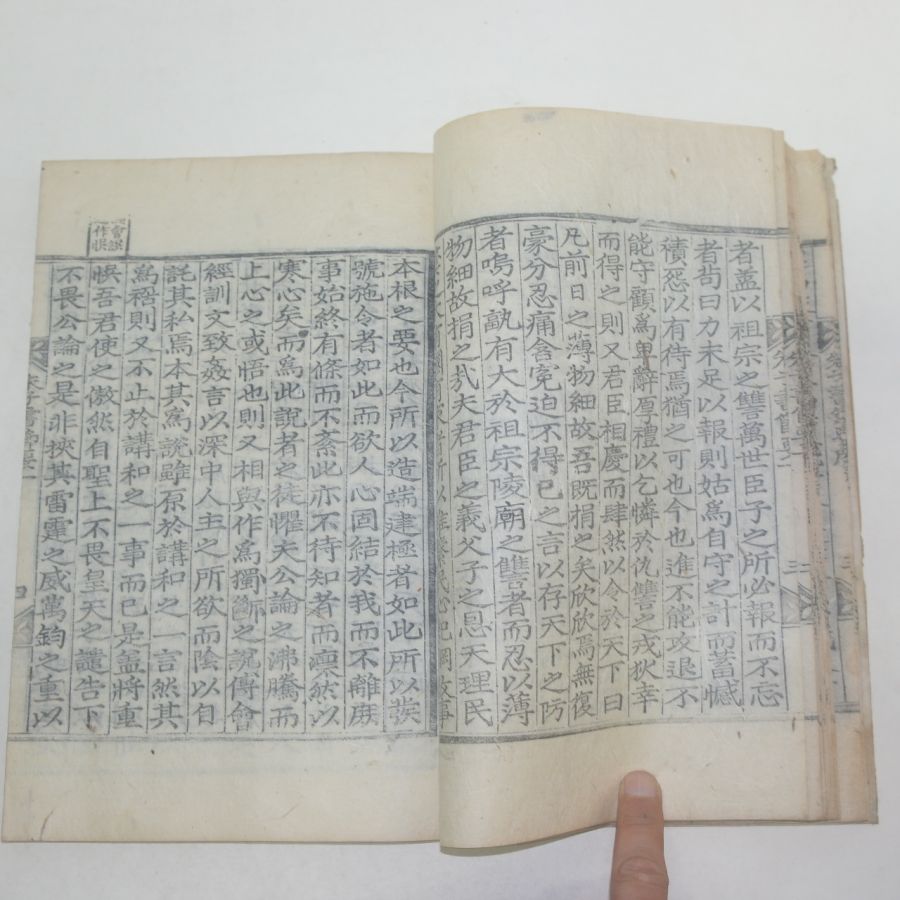 者盖以祖宗之讐萬世臣子之所必報而不忘
者苟曰力未足以報則姑為自守之計而蓄憾
積怨以有待焉猶之可也今也進不能攻退不
能守顧為卑辭厚禮以乞憐於仇讐之戎狄幸
而得之則又君臣相慶而肆然以令於天下曰
凡前日之薄物細故吾既捐之矣欣欣焉無復
豪分忍痛含寃迫不得已之言以存天下之防
者嗚呼孰有大於祖宗陵廟之讐者而忍以薄
物細故捐之㢤夫君臣之義父子之恩天理民
本根之要也今所以造端建極者如此所以發
號施令者如此而欲人心固結於我而不離庶
事始終有條而不紊此亦不待知者而凛然以
寒心矣而為此說者之徒懼夫公論之沸騰而
上心之或悟也則又相與作為獨斷之說傅會
經訓文致姦言以深中人主之所欲而陰以自
託其私焉本其為說雖原於講和之一言然其
為禍則又不止於講和之一事而已是盖將重
悞吾君使之傲然自聖上不畏皇天之譴告下
不畏公論之是非挾其雷霆之威萬鈞之重以
四